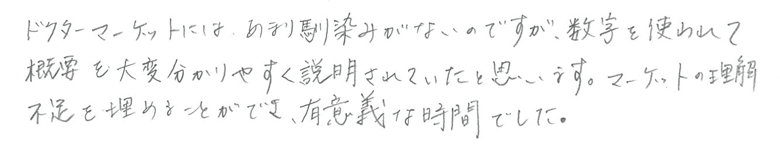 ドクターマーケットには、あまり馴染みがないのですが、数字を使われて
概要を大変分かりやすく説明されていたと思います。マーケットの理解
不足を埋めることができ、有意義な時間でした。